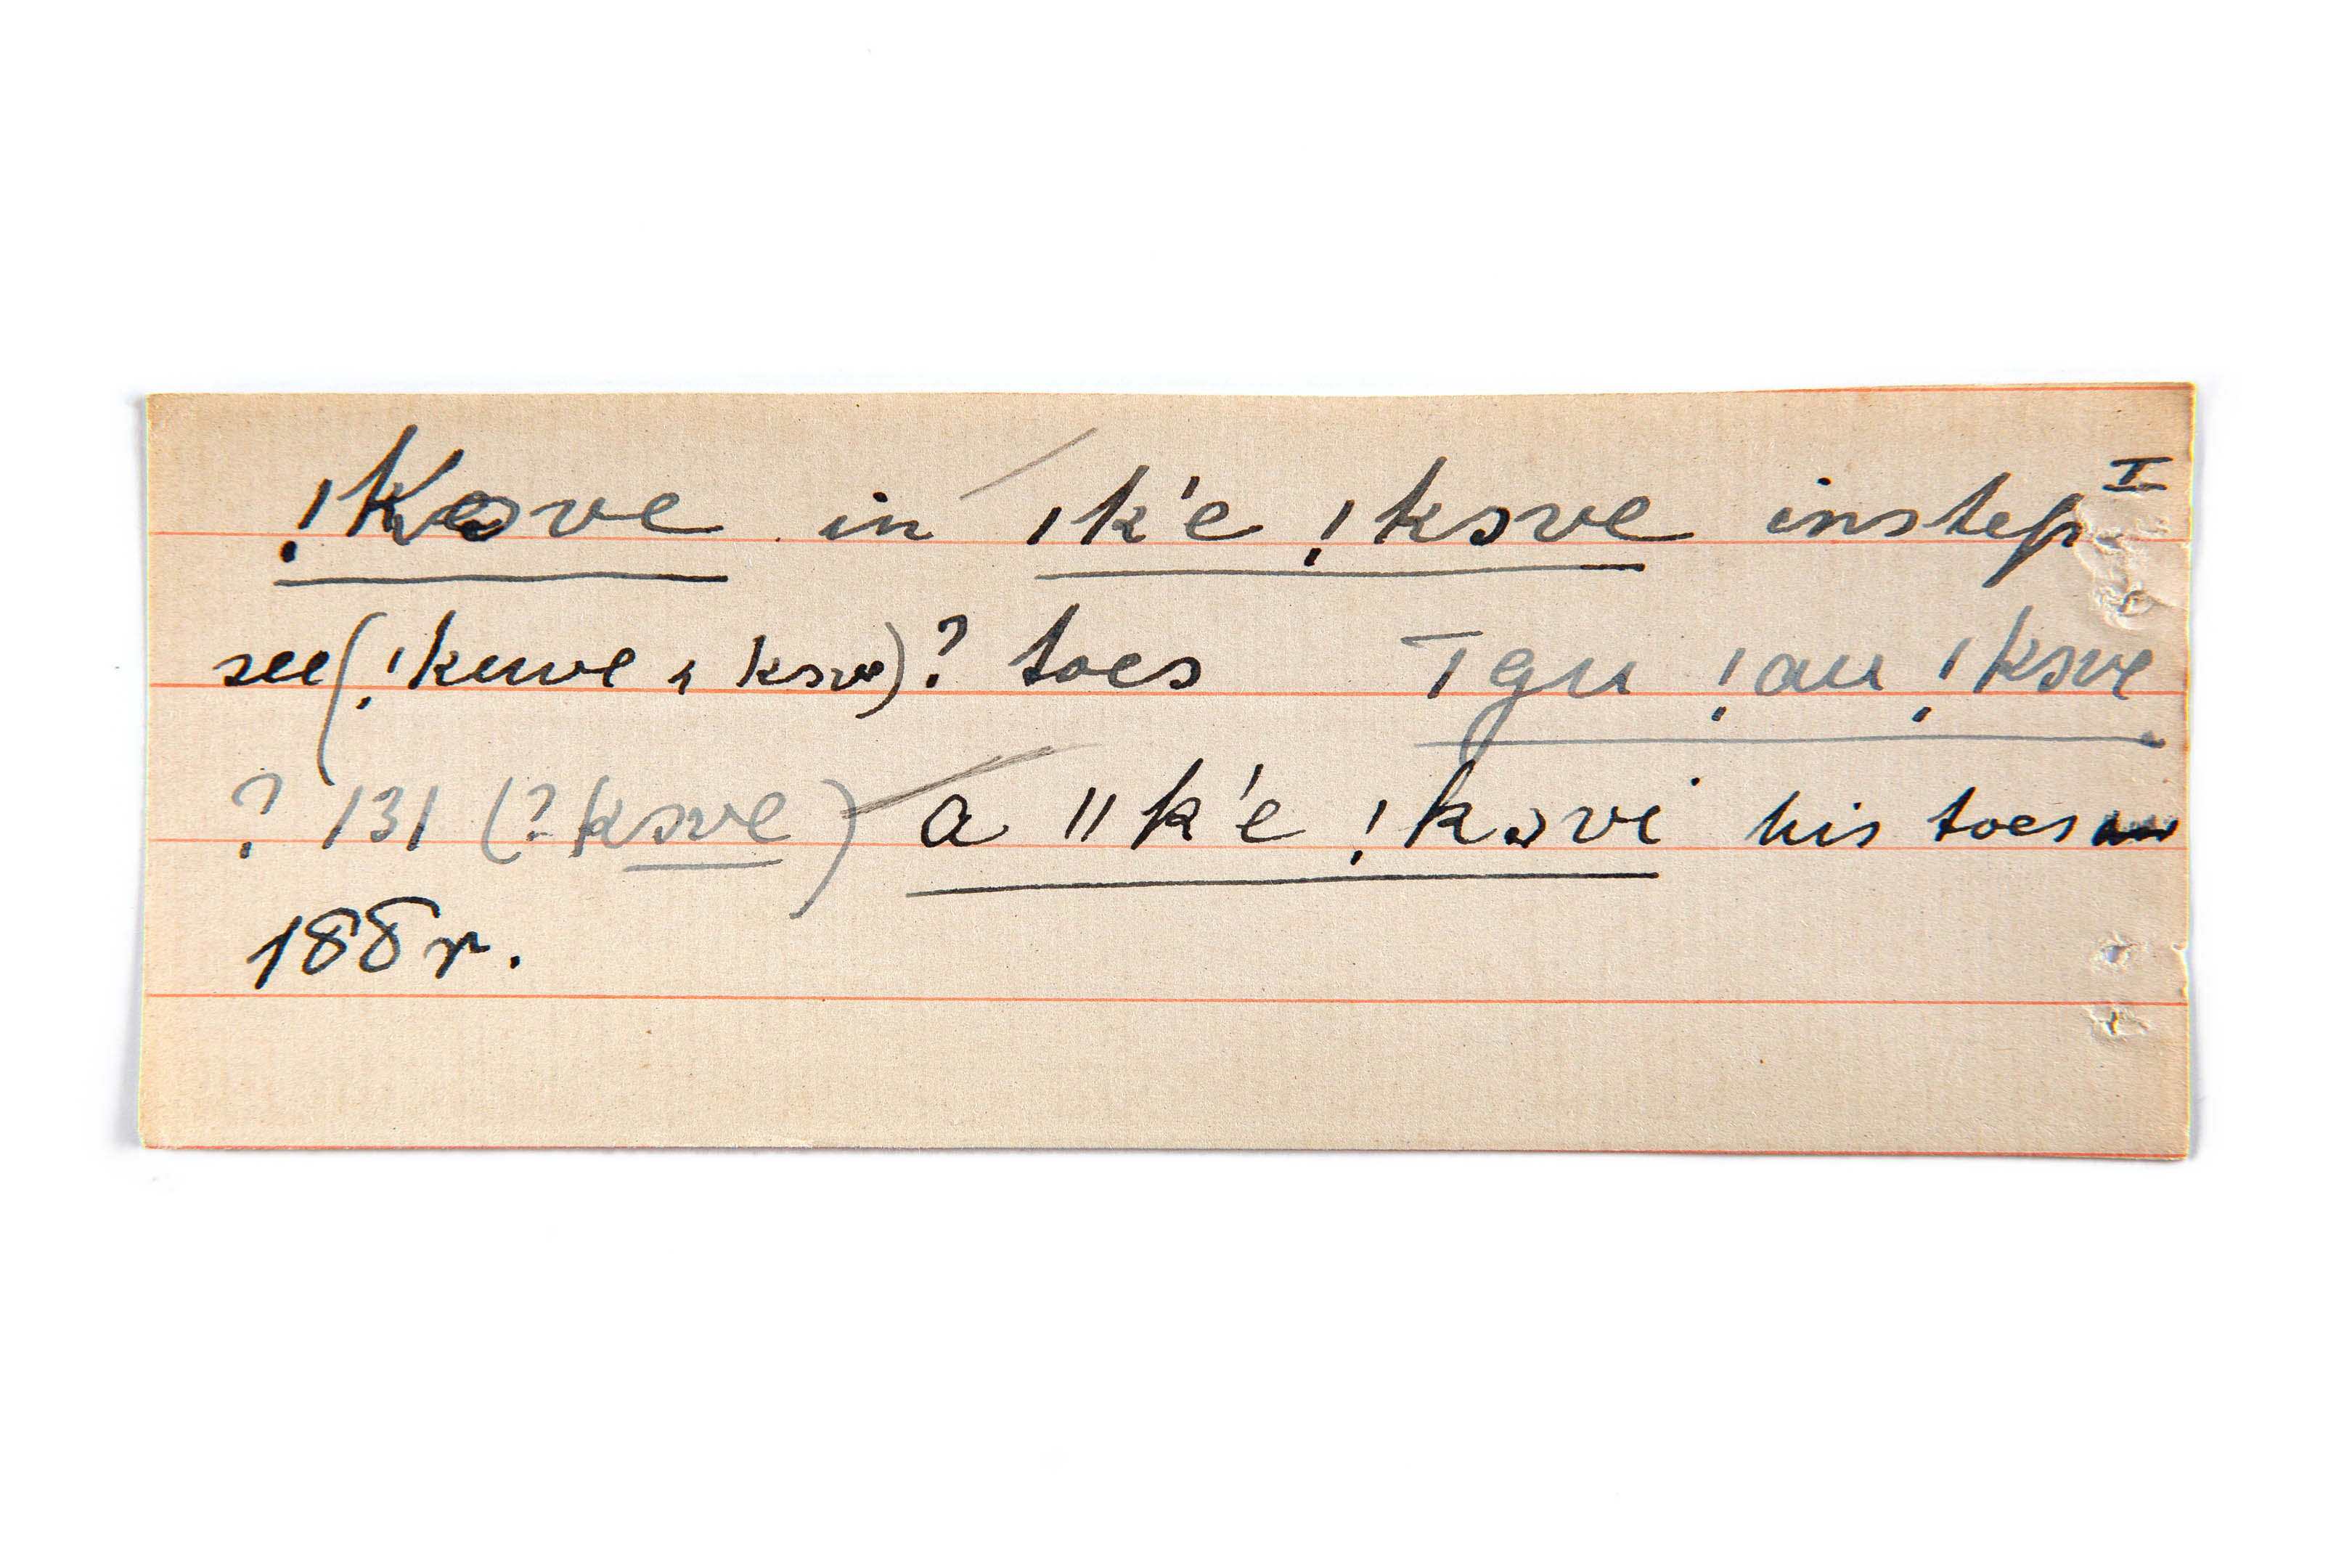 !kɔve in ǀk'e !kɔve instep I
see (!kuwe & kɔve)? toes Tgu !au !kɔve
? 131 (? kɔve) a ǁk'e !kɔvi his toes
188r.